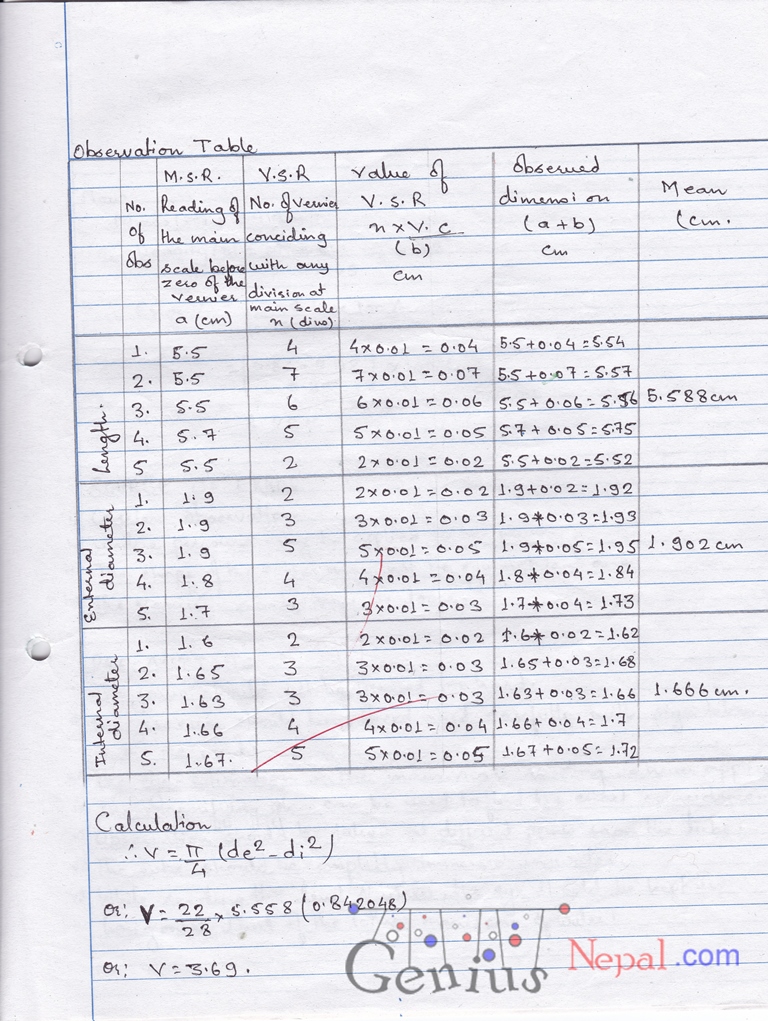 Observation Table
No. of obs | M.S.R. Reading of the main scale before zero of the vernier a (cm) | V.S.R No. of vernier conciding with any division at main scale n (divs) | Value of V.S.R n x V.C (b) cm | Observed dimension (a+b) cm | Mean (cm.
Length.
1. 5.5 4 4x0.01 = 0.04 5.5+0.04=5.54
2. 5.5 7 7x0.01 = 0.07 5.5+0.07=5.57
3. 5.5 6 6x0.01 = 0.06 5.5+0.06=5.56 5.588cm
4. 5.7 5 5x0.01 = 0.05 5.7+0.05=5.75
5 5.5 2 2x0.01 = 0.02 5.5+0.02=5.52
External diameter
1. 1.9 2 2x0.01 = 0.02 1.9+0.02=1.92
2. 1.9 3 3x0.01 = 0.03 1.9+0.03=1.93
3. 1.9 5 5x0.01 = 0.05 1.9+0.05=1.95 1.902cm
4. 1.8 4 4x0.01 = 0.04 1.8+0.04=1.84
5. 1.7 3 3x0.01 = 0.03 1.7+0.04=1.73
Internal diameter
1. 1.6 2 2x0.01 = 0.02 1.6+0.02=1.62
2. 1.65 3 3x0.01 = 0.03 1.65+0.03=1.68
3. 1.63 3 3x0.01 = 0.03 1.63+0.03=1.66 1.666cm.
4. 1.66 4 4x0.01 = 0.04 1.66+0.04=1.7
5. 1.67. 5 5x0.01 = 0.05 1.67+0.05=1.72
Calculation
∴ V = π/4 (de² - di²)
Or; V = 22/28 x 5.558 (0.842048)
Or; V = 3.69.
Genius Nepal.com